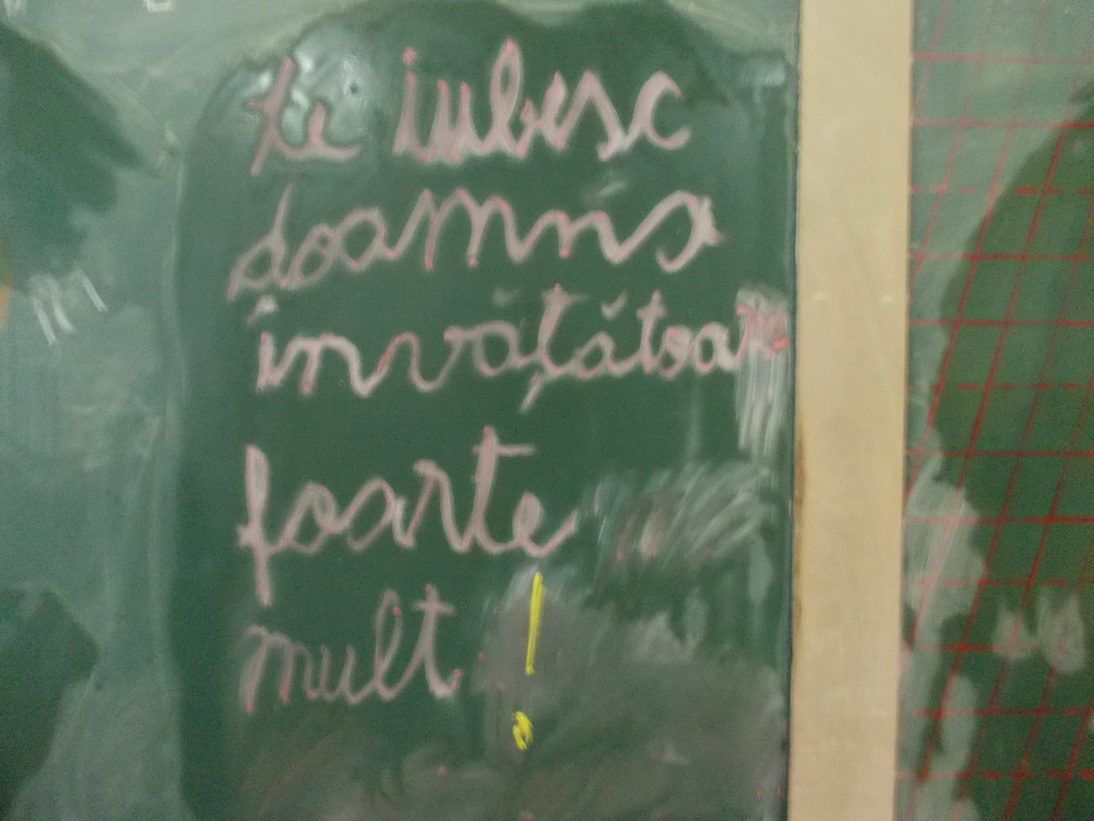 te iubesc
doamna
învățătoare
foarte
mult !